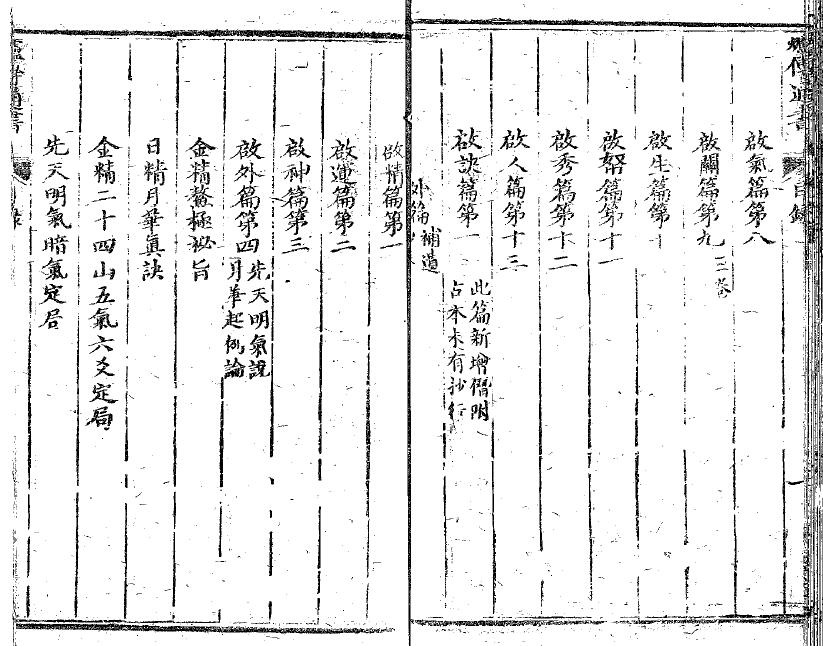 啟氣篇第八
啟關篇第九 三卷
啟生篇第十
啟弩篇第十一
啟秀篇第十二
啟人篇第十三
啟訣篇第一 此篇新增僭附
古本未有抄行
外篇補遺
啟情篇第一
啟運篇第二
啟神篇第三
啟外篇第四 先天明氣說
月華起例論
金精鰲極祕旨
日精月華眞訣
金精二十四山五氣六爻定局
先天明氣暗氣定局